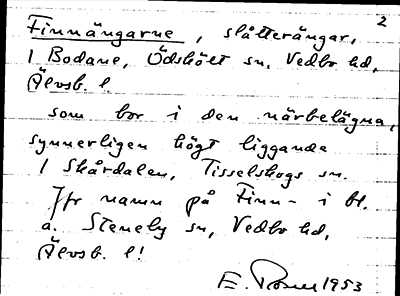 2
Finnängarne, slåtterängar,
1 Bodane, Ödskölt sn, Vedbo hd,
Älvsb. l.
som bor i den närbelägna,
synnerligen högt liggande
1 Skårdalen, Tisselskogs sn.
Jfr namn på Finn- i bl.
a. Steneby sn, Vedbo hd,
Älvsb. l!
E. 1953